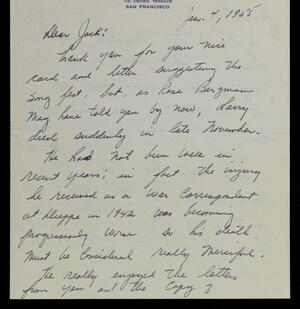 110 CROWN TERRACE
SAN FRANCISCO
Jan. 4, 1955
Dear Jack:
Thank you for your nice
card and letter suggesting the
song fest, but, as Rose Bergman
may have told you by now, Larry
died suddenly in late November.
He had not been well in
recent years; in fact the injury
he received as a war correspondent
at Dieppe in 1942 was becoming
progressively worse so his death
must be considered really merciful.
He really enjoyed the letters
from you and the copy